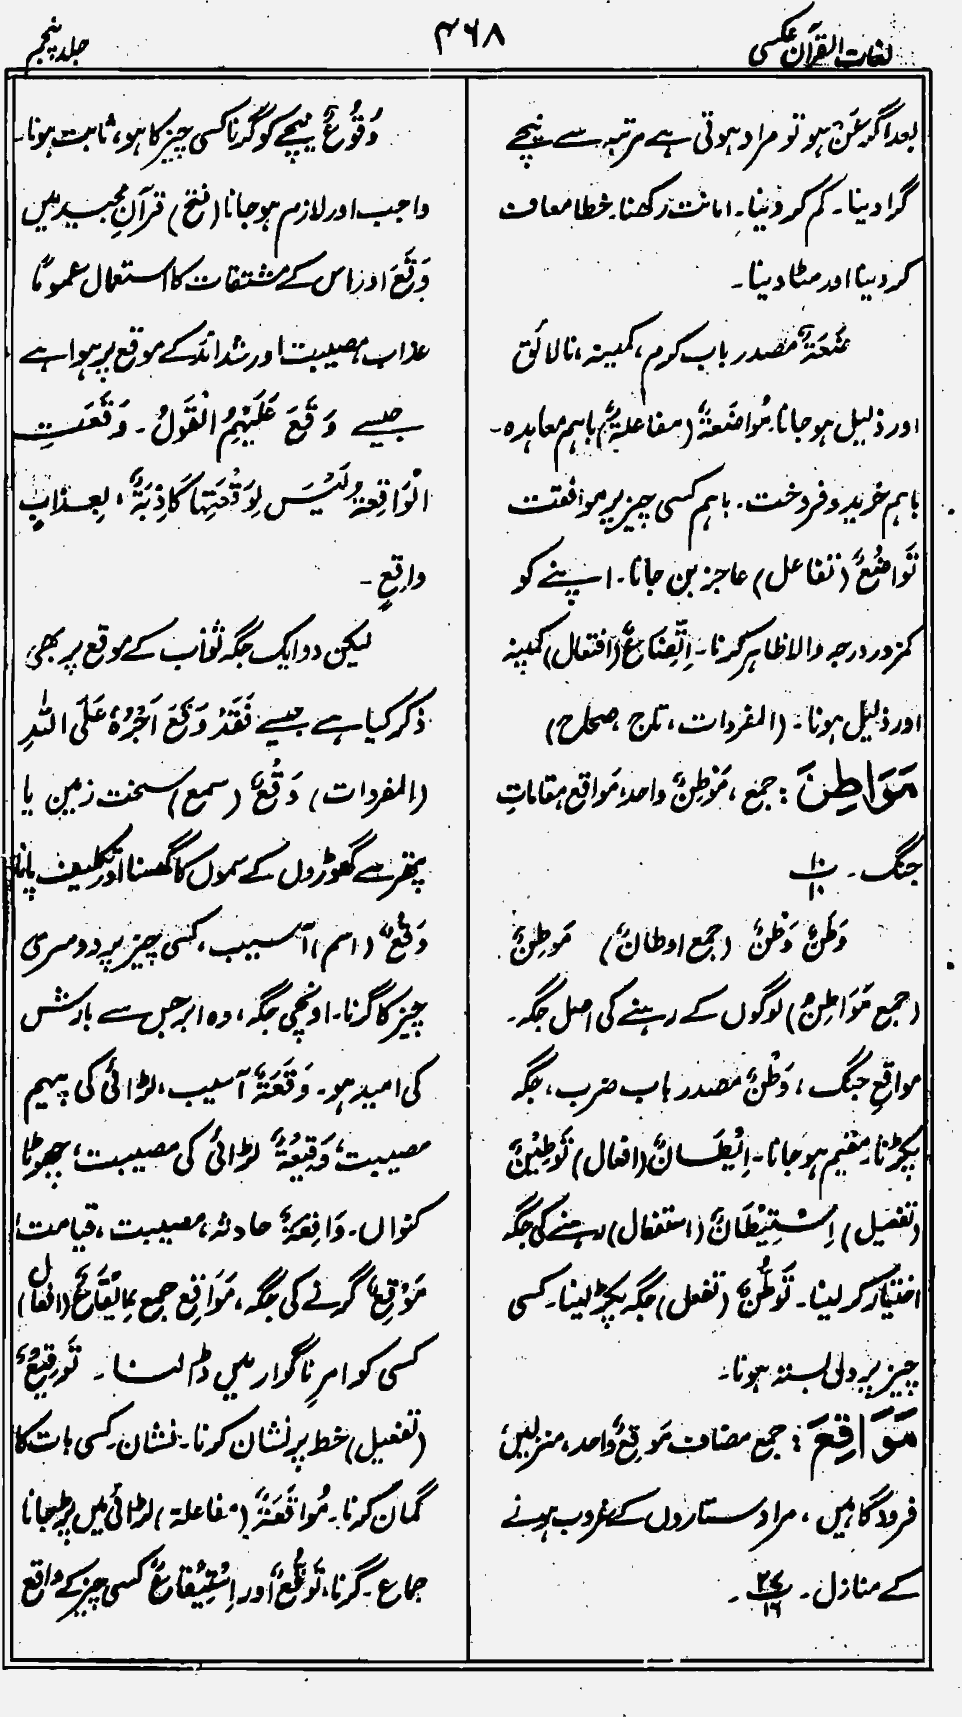 لغات القرآن عکسی
۴۶۸
جلد پنجم
بعد اگر عَنْ ہو تو مراد ہوتی ہے مرتبہ سے نیچے
گرا دینا۔ کم کر دینا۔ امانت رکھنا۔ خطا معاف
کر دینا اور مٹا دینا۔
ضَعَۃٌ مصدر باب کرم، کمینہ، نالائق
اور ذلیل ہو جانا۔ مُواضَعَۃٌ (مفاعلۃ) باہم معاہدہ۔
باہم خرید و فروخت۔ باہم کسی چیز پر موافقت
تَوَاضُعٌ (تفاعل) عاجز بن جانا۔ اپنے کو
کمزور درجہ والا ظاہر کرنا۔ اِتِّضَاعٌ (افتعال) کمینہ
اور ذلیل ہونا۔ (المفردات، تاج، صحاح)
مَوَاطِنَ : جمع، مَوْطِنٌ واحد، مَواقع مقاماتِ
جنگ۔ پ۱۰/۱۰
وَطَنٌ وَطْنٌ (جمع اوطانٌ) مَوطِنٌ
(جمع مَوَاطِنُ) لوگوں کے رہنے کی اصل جگہ۔
مواقعِ جنگ، وَطْنٌ مصدر باب ضرب، جگہ
پکڑنا۔ مقیم ہو جانا۔ اِیْطَانٌ (افعال) تَوْطِیْنٌ
(تفعیل) اِسْتِیْطَانٌ (استفعال) رہنے کی جگہ
اختیار کر لینا۔ تَوَطُّنٌ (تفعل) جگہ پکڑ لینا۔ کسی
چیز پر دلی بستہ ہونا۔
مَوَاقِعَ : جمع مضاف مَوقِعٌ واحد، منزلیں
فرودگاہیں، مراد ستاروں کے غروب ہونے
کے منازل۔ پ۲۷/۱۶۔
وُقُوْعٌ نیچے کو گرنا کسی چیز کا ہو، ثابت ہونا۔
واجب اور لازم ہو جانا (فتح) قرآنِ مجید میں
وَقَعَ اور اس کے مشتقات کا استعمال عمومًا
عذاب، مصیبت اور شدائد کے موقع پر ہوا ہے
جیسے وَقَعَ عَلَیْهِمُ الْقَوْلُ۔ وَقَعَتِ
الْوَاقِعَۃُ لَیْسَ لِوَقْعَتِهَا کَاذِبَۃٌ، بِعذابٍ
واقعٍ۔
لیکن دو ایک جگہ ثواب کے موقع پر بھی
ذکر کیا ہے جیسے فَقَدْ وَقَعَ اَجْرُهٗ عَلَی اللّٰهِ
(المفردات) وَقْعٌ (سمع) سخت زمین یا
پتھر سے گھوڑوں کے سموں کا گھسنا اور تکلیف پانا
وَقْعٌ (اسم) آسیب، کسی چیز پر دوسری
چیز کا گرنا۔ اونچی جگہ، وہ ابر جس سے بارش
کی امید ہو۔ وَقْعَۃٌ آسیب، لڑائی کی پیہم
مصیبت، وَقِیْعَۃٌ لڑائی کی مصیبت، چھوٹا
کنواں۔ وَاقِعَۃٌ حادثہ، مصیبت، قیامت،
مَوْقِعٌ گرنے کی جگہ، مَوَاقِع جمع اِیْقَاعٌ (افعال)
کسی کو امرِ ناگوار میں ڈالنا۔ تَوقِیْعٌ
(تفعیل) خط پر نشان کرنا۔ نشان۔ کسی بات کا
گمان کرنا۔ مُوَاقَعَۃٌ (مفاعلۃ) لڑائی میں پڑ جانا
جماع۔ گرنا، تَوَقُّعٌ اور اِسْتِیْقَاعٌ کسی چیز کے واقع